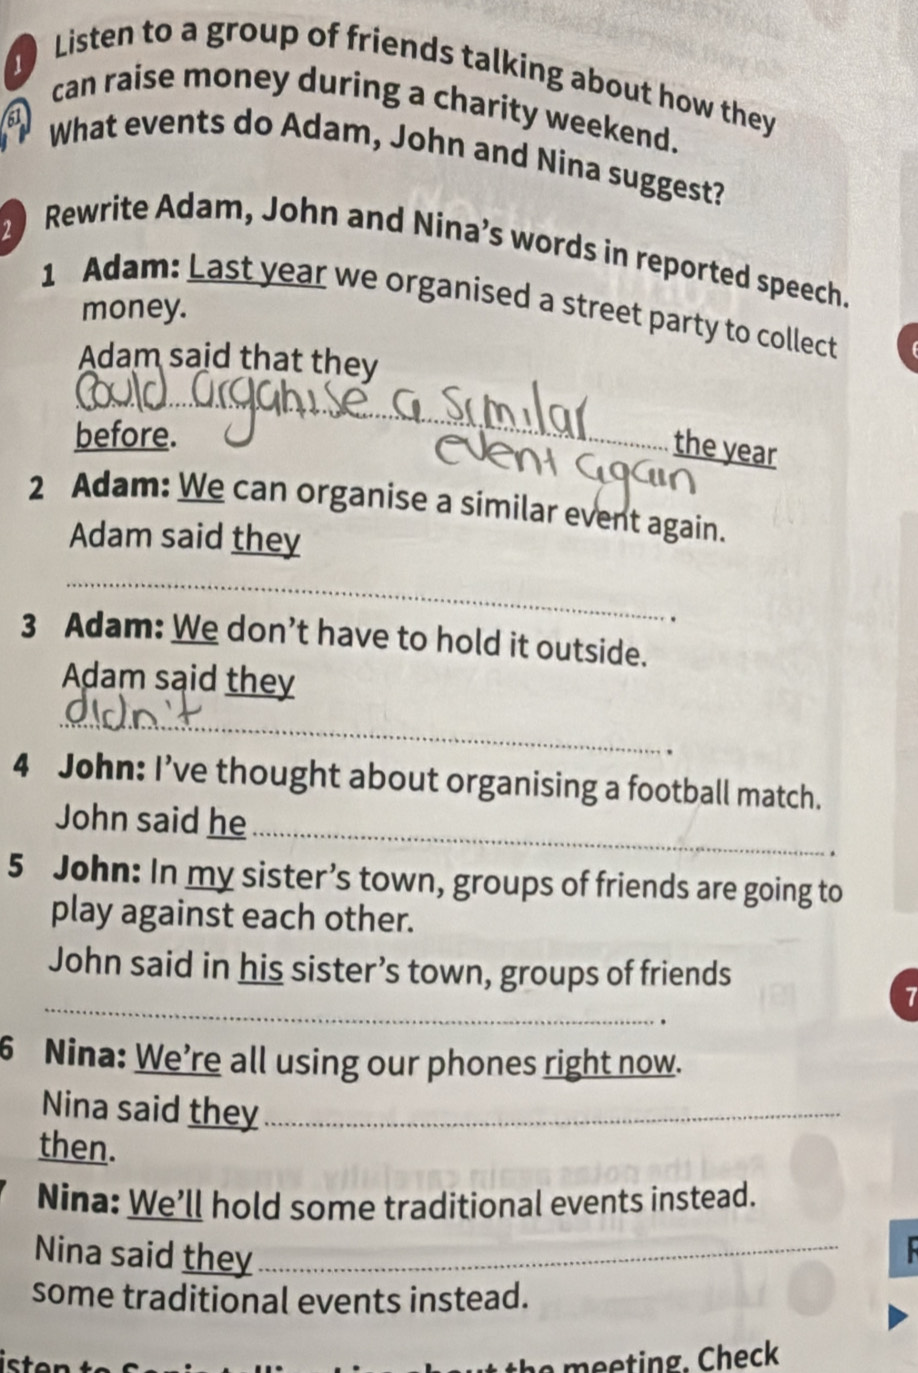 1 Listen to a group of friends talking about how they
can raise money during a charity weekend.
61 What events do Adam, John and Nina suggest?
2 Rewrite Adam, John and Nina's words in reported speech.
1 Adam: Last year we organised a street party to collect
money.
Adam said that they
Could organise a similar
event again
the year
before.
2 Adam: We can organise a similar event again.
Adam said they
.
3 Adam: We don't have to hold it outside.
Adam said they
didn't
.
4 John: I've thought about organising a football match.
John said he .
5 John: In my sister's town, groups of friends are going to
play against each other.
John said in his sister's town, groups of friends
.
6 Nina: We're all using our phones right now.
Nina said they
then.
Nina: We'll hold some traditional events instead.
Nina said they
some traditional events instead.
meeting. Check
7